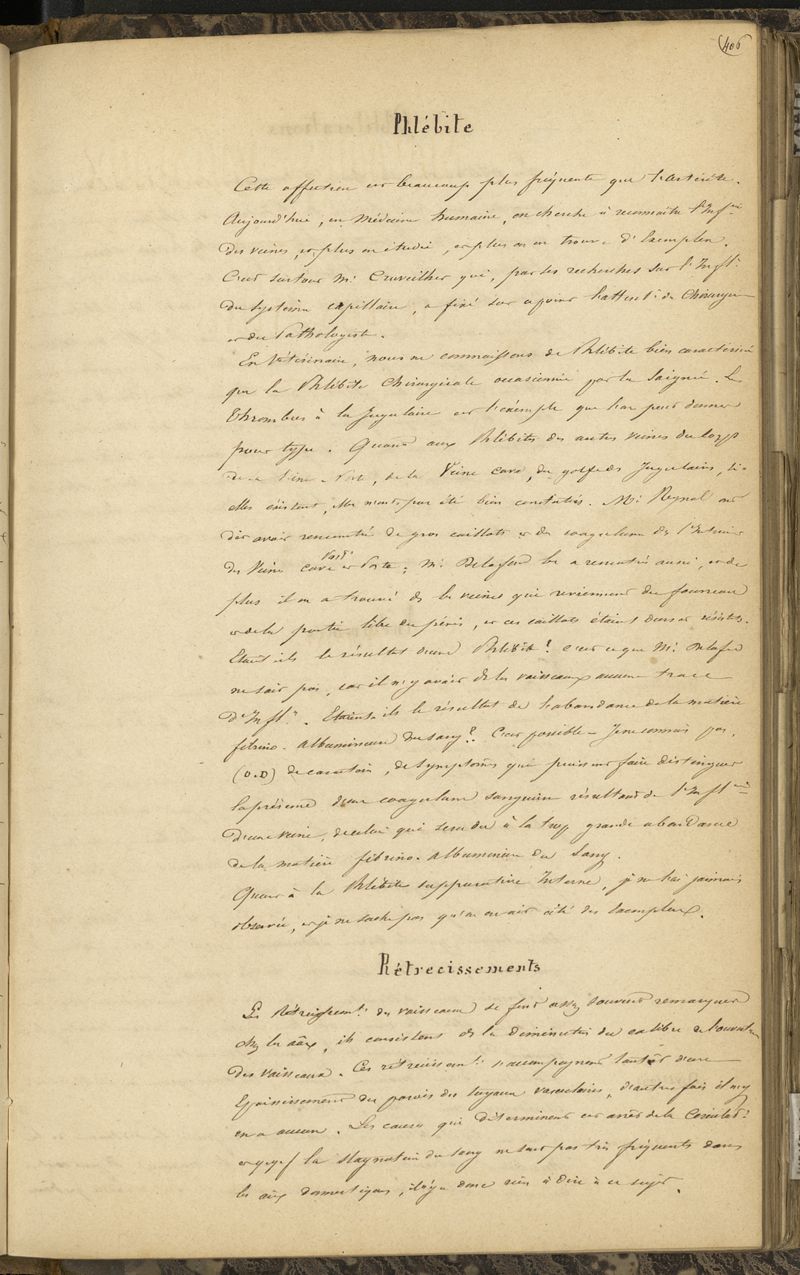 406
Phlébite
Cette affection est beaucoup plus fréquente que l'artérite.
Aujourd'hui, en Médecine humaine, on cherche à reconnaître l'Infl.on
des veines, et plus on étudie, et plus on en trouve d'Exemples.
C'est surtout Mr Cruveilher qui, par ses recherches sur l'Infl.n
du système capillaire, a fixé sur ce point l'attent.n du Chirurgien
et du Pathologiste.
En Vétérinaire, nous ne connaissons de Phlébite bien caractérisée
que la Phlébite Chirurgicale occasionnée par la Saignée. Le
Thrombus à la Jugulaire est l'exemple que l'on peut donner
pour type. Quant aux Phlébites des autres veines du corps
de la Veine-Porte, de la Veine cave, du golfe des Jugulaires, si
elles existent, elles n'ont pas été bien constatées. Mr Reynal nous
dit avoir rencontré de gros caillots et des coagulums ds l'Intérieur
des Veines cave et Porte; Mr Delafond les a rencontrés aussi, et de
plus il en a trouvé ds les veines qui reviennent du fourreau
et de la partie libre du pénis, et ces caillots étaient denses et résist.ts
Etaient ils le résultat d'une Phlébite! c'est ce que Mr Delafond
ne sait pas, car il n'y avait ds les vaisseaux aucune trace
d'Infl.n. Etaient ils le résultat de l'abondance de la matière
fibrino-albumineuse du sang? C'est possible — Je ne connais pas,
(O.D) de caractères, de Symptômes qui puissent faire distinguer
la présence d'un coagulum sanguin résultant de l'Infl.on
d'une veine, de celui qui serait dû à la trop grande abondance
de la matière fibrino-albumineuse du Sang.
Quant à la Phlébite suppurative Interne, je ne l'ai jamais
observée, et je ne sache pas qu'on en ait cité des exemples.
Rétrecissements
Les Rétrécissem.ts des vaisseaux se font assez souvent remarquer
chez les aãx, ils consistent ds la diminution du calibre et l'ouverture
des vaisseaux. Ces rétrécissem.ts s'accompagnent tantôt d'une
Epaississement des parois des tuyaux vasculaires, d'autres fois il n'y
en a aucun. Les causes qui déterminent cet arrêt de la Circulat.n
la stagnation du sang ne sont pas très fréquentes dans
les aãx domestiques, il n'y a donc rien à dire à ce sujet.